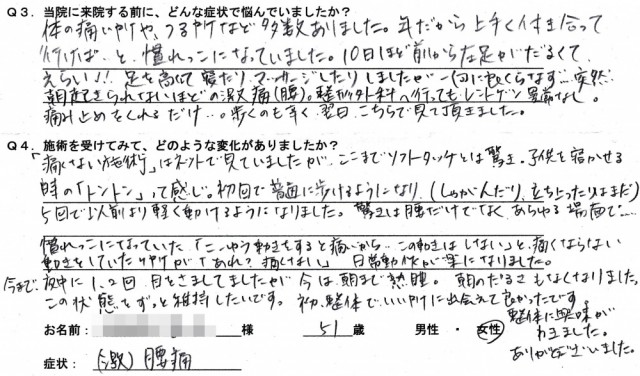 Q3. 当院に来院する前に、どんな症状で悩んでいましたか？
体の痛いやけや、つるやけなど多数ありました。年だから上手く付き合って
行けば…と、慣れっこになっていました。10日ほど前から左足がだるくて、
えらい!! 足を高くして寝たり、マッサージしたりしましたが一向に良くならず…突然
朝起きられないほどの激痛(腰)。整形外科へ行ってもレントゲン異常なし。
痛み止めをくれるだけ…。歩くのも辛く翌日、こちらで見て頂きました。
Q4. 施術を受けてみて、どのような変化がありましたか？
「痛くない施術」はネットで見ていましたが、ここまでソフトタッチとは驚き。子供を寝かせる
時の「トントン」って感じ。初回で普通に歩けるようになり、(しゃがんだり、立ち上ったりはまだ)
5回で以前より軽く動けるようになりました。驚きは腰だけでなく、あらゆる場面で…
慣れっこになっていた「こーゆう動きをすると痛いから…この動きはしない」と、痛くならない
動きをしていたワケが「あれ？痛くない」日常動作が楽になりました。
今まで、夜中に1、2回目をさましてましたが今は朝まで熟睡。朝のだるさもなくなりました。
この状態をずっと維持したいです。初、整体でいいやけに出会えて良かったです。
整体に興味が
わきました。
ありがとうございました。
お名前： 様 51 歳 男性 ・ 女性
症状： (激)腰痛